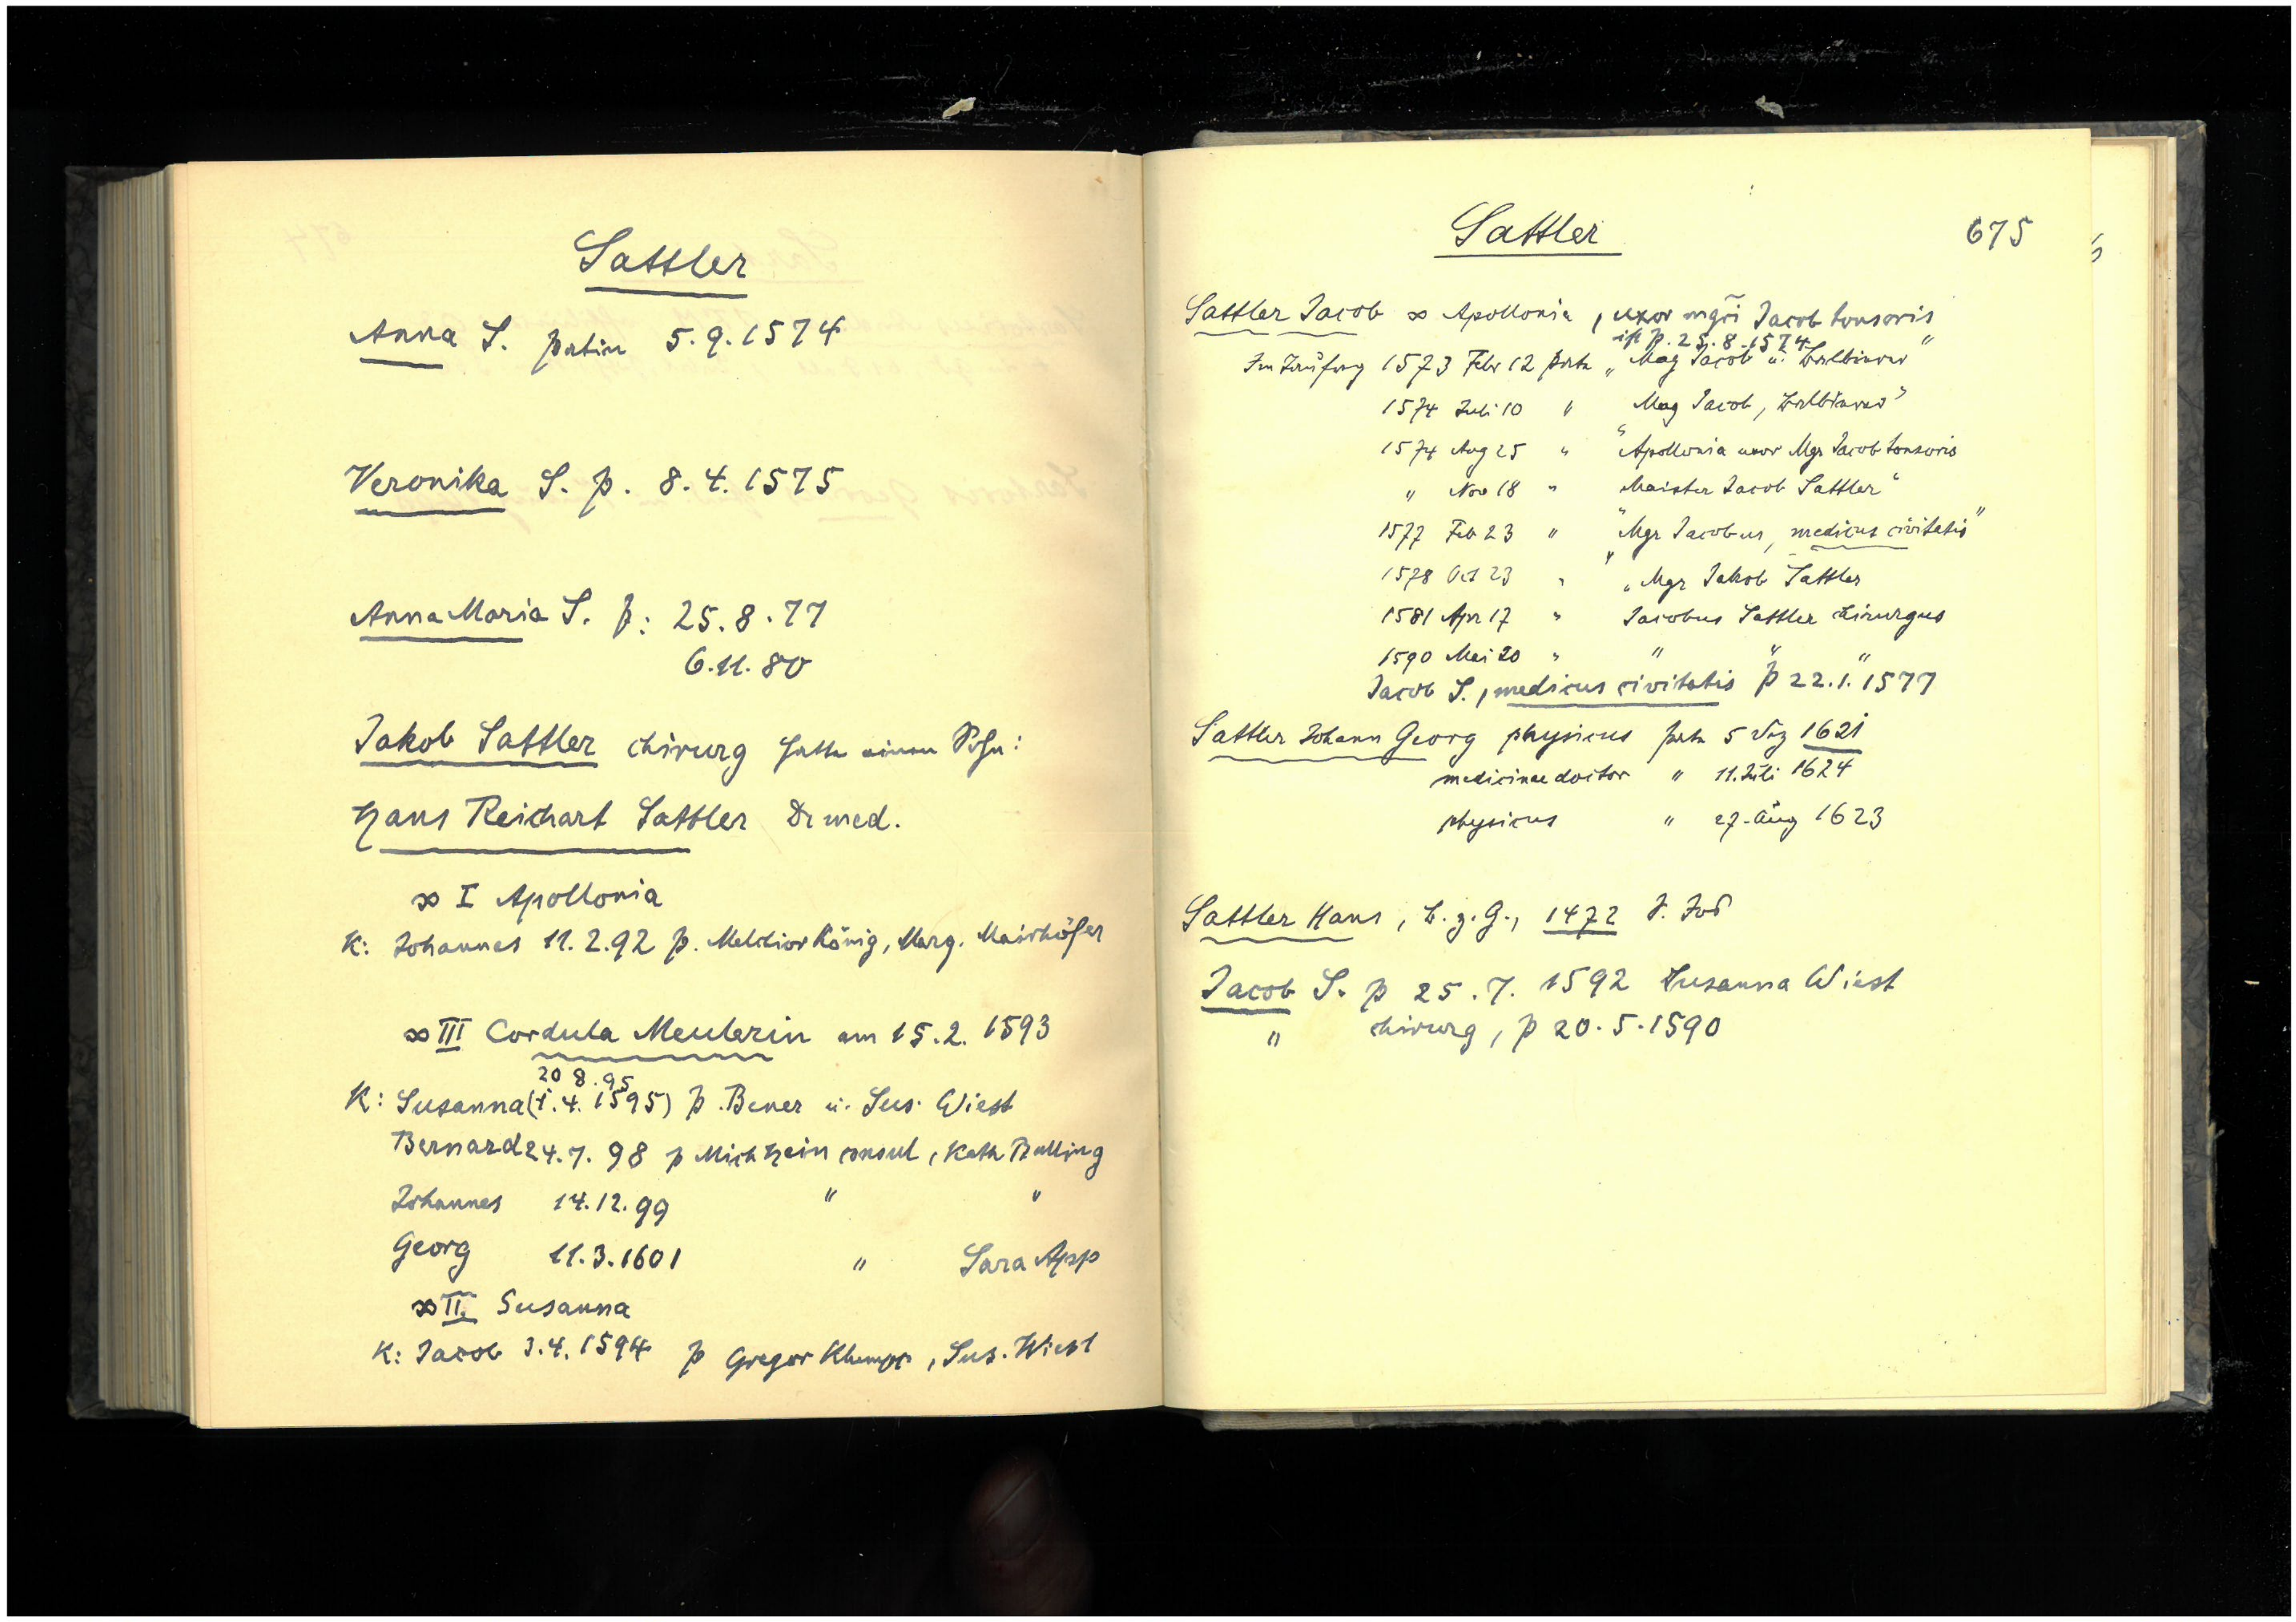 Sattler
Anna S. patin 5.9.1574
Veronika S. p. 8.4.1575
Anna Maria S. p: 25.8.77
6.11.80
Jakob Sattler chirurg hatte einen Sohn:
Hans Reichart Sattler Dr med.
∞ I Apollonia
K: Johannes 11.2.92 p. Melchior König, Marg. Mairhöfer
∞ III Cordula Meulerin am 15.2.1593
20 8.95
K: Susanna (1.4.1595) p. Bener u. Sus. Wiest
Bernard 24.7.98 p Mich Hein consul, Kath Balling
Johannes 14.12.99 " "
Georg 11.3.1601 " Sara App
∞ II. Susanna
K: Jacob 3.4.1594 p Gregor, Sus. Wiest
Sattler 675
Sattler Jacob ∞ Apollonia, uxor mgri Jacob tonsoris
ist p. 25.8.1574
1573 Febr 12 "Mag Jacob u. Balbierer"
1574 Juli 10 " Mag Jacob, Balbierer"
1574 Aug 25 " "Apollonia uxor Mgr Jacob tonsoris
" Nov 18 " "Maister Jacob Sattler"
1577 Feb 23 " "Mgr Jacobus, medicus civitatis"
1578 Oct 23 " "Mgr Jakob Sattler
1581 Apr 17 " Jacobus Sattler chirurgus
1590 Mai 20 " " " "
Jacob S., medicus civitatis p 22.1.1577
Sattler Johann Georg physicus 5 1621
medicinae doctor " 11. Juli 1624
physicus " 27. Aug 1623
Sattler Hans, B.z.G., 1472
Jacob S. p 25.7.1592 Susanna Wiest
" chirurg, p 20.5.1590